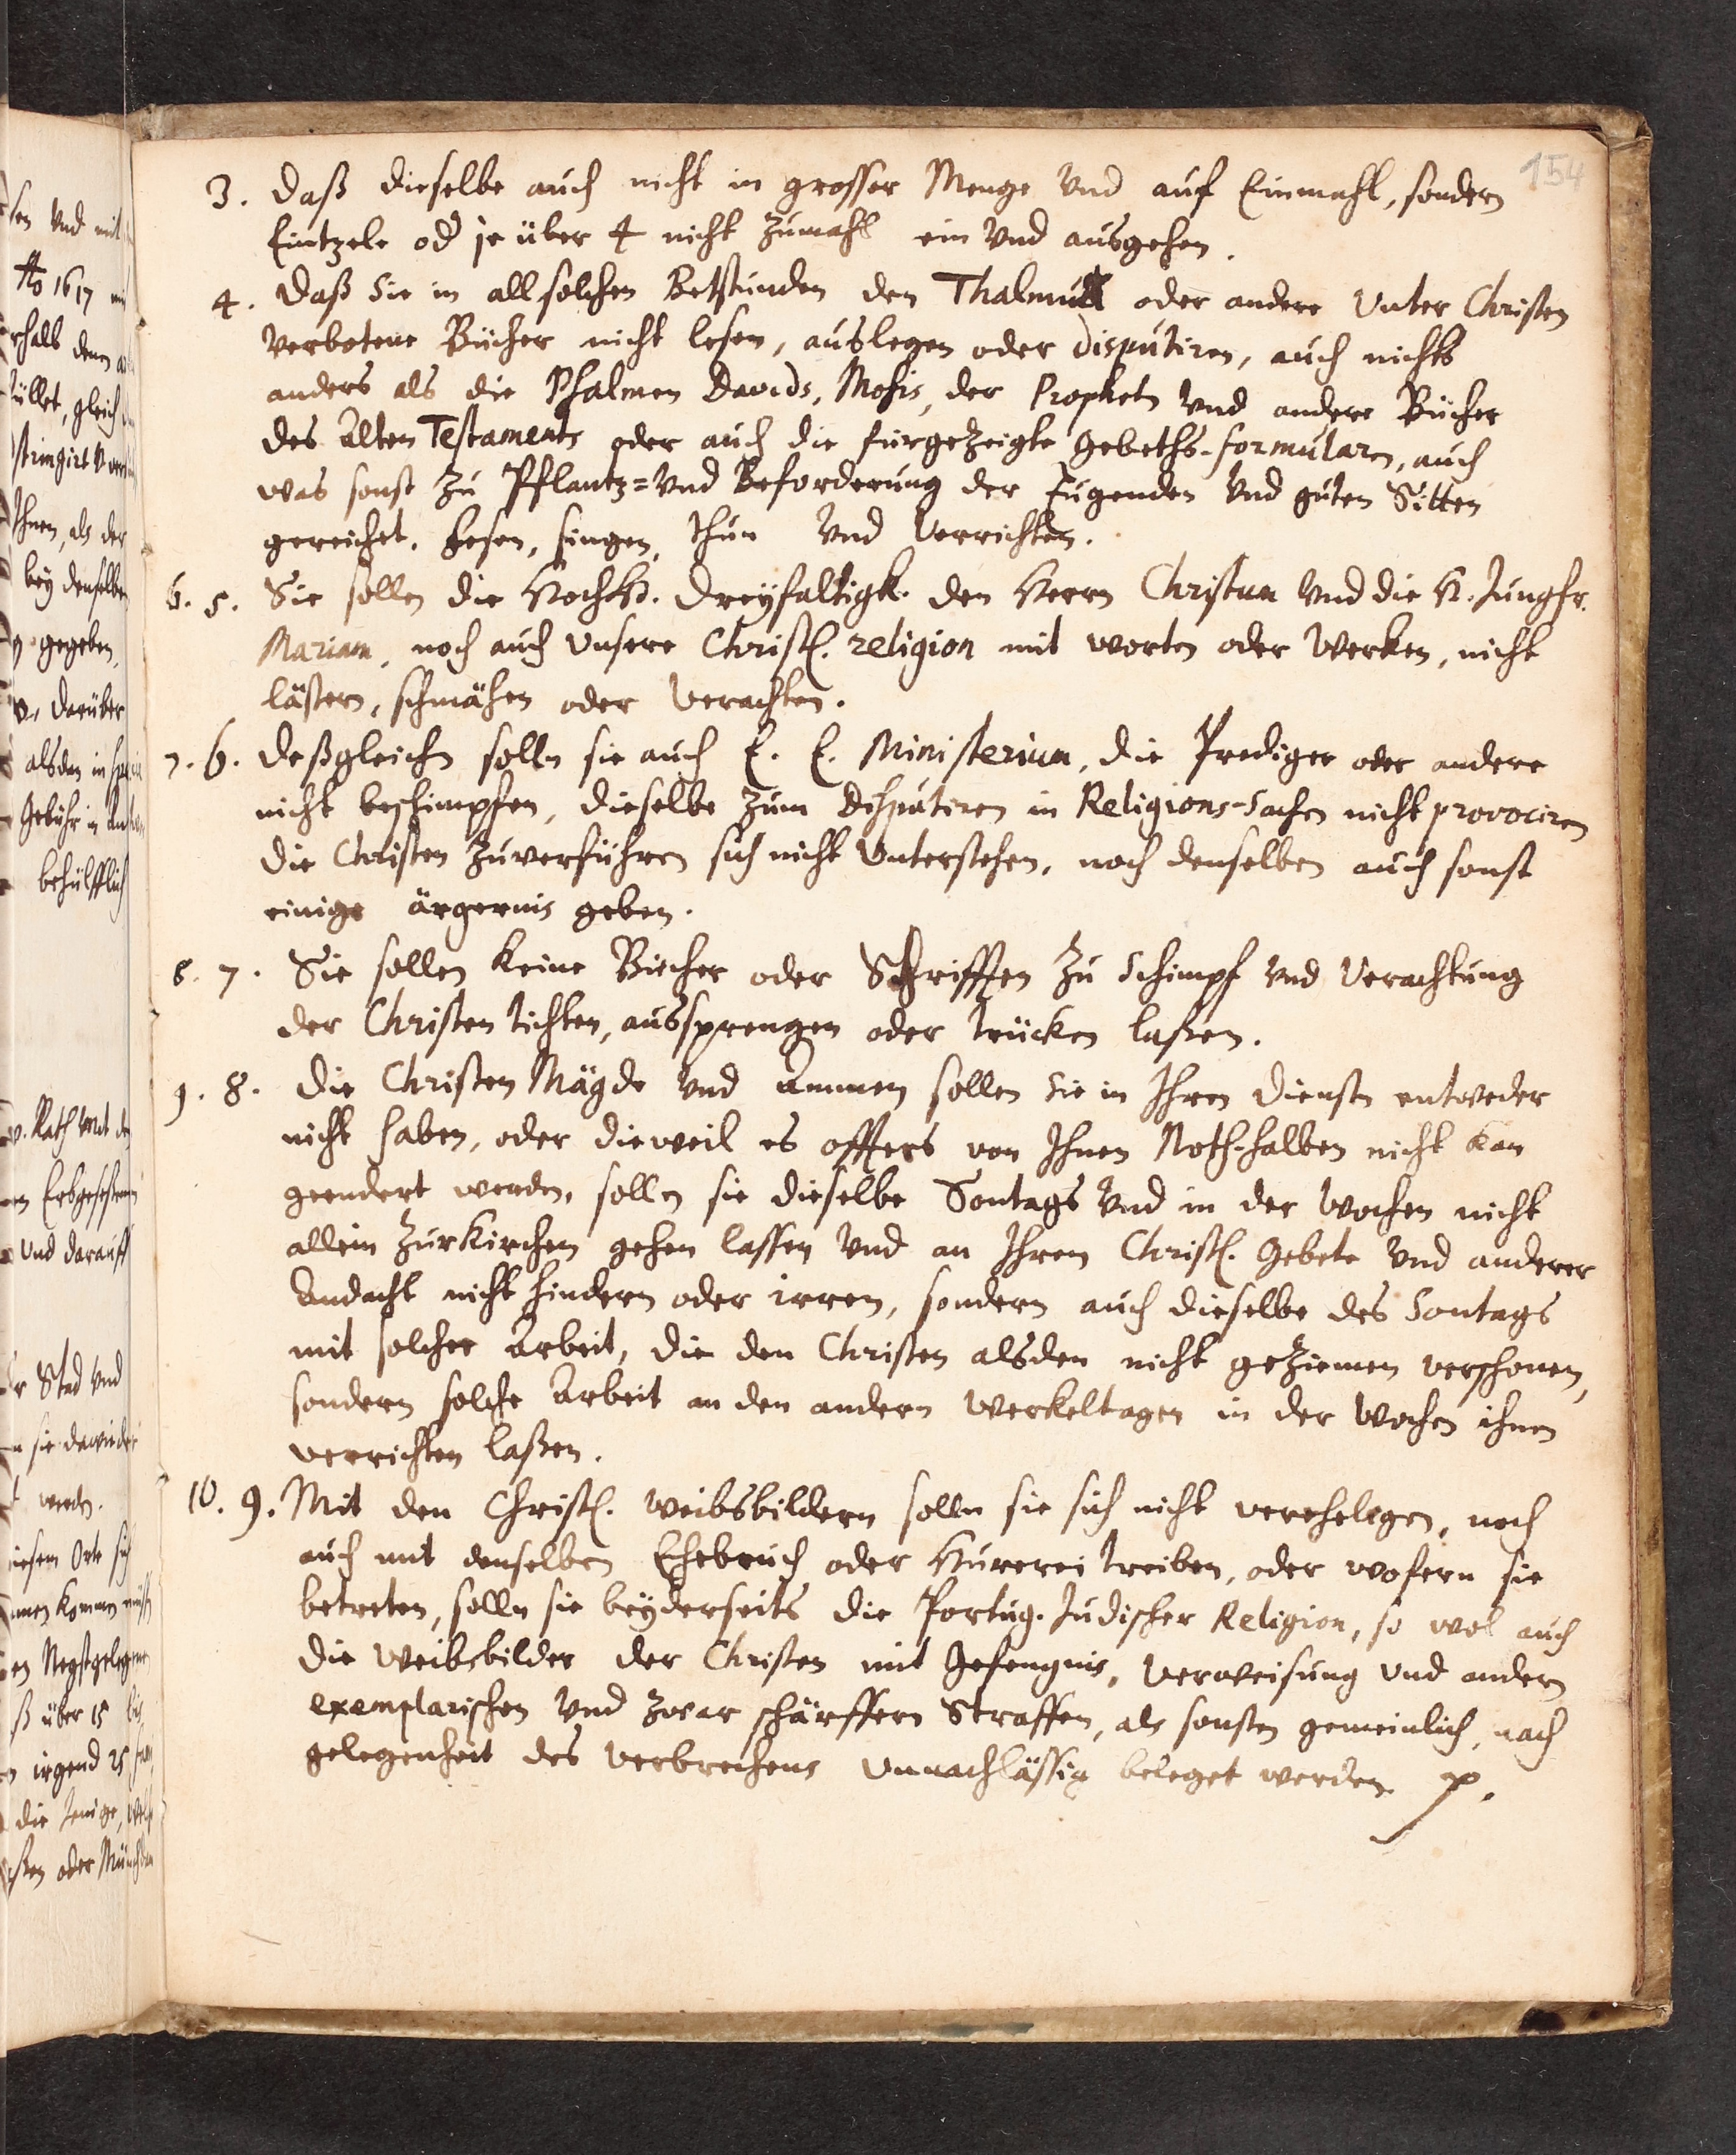 154
3. Daß dieselbe auch nicht in grosser Menge Vnd auf Einmahl, sondern
Eintzele od je über 4 nicht zumahl ein Vnd ausgehen.
4. Daß Sie in all solchen Betstunden den Thalmud oder andere Vnter Christen
Verbotene Bücher nicht lesen, auslegen oder disputiren, auch nichts
anders als die Psalmen Davids, Mosis, der Propheten Vnd andere Bücher
des Alten Testaments oder auch die fürgezeigte Gebeths-formularen, auch
was sonst zu Pflantz= Vnd Beforderung der Tugenden Vnd guten Sitten
gereichet. Lesen, singen, thun Vnd Verrichten.
6. 5. Sie sollen die HochH. Dreyfaltigk. den Herrn Christum Vnd die H. Jungfr.
Mariam, noch auch Vnsere Christl. religion mit worten oder Werken, nicht
lästern, schmähen oder Verachten.
7. 6. Deßgleichn solln sie auch E. E. Ministerium, die Prediger oder andere
nicht beschimpfen, dieselbe zum Disputiren in Religions-Sachen nicht provociren
die Christen zuverführen sich nicht Vnterstehen, noch denselben auch sonst
einige ärgernis geben.
8. 7. Sie sollen keine Bücher oder Schrifften zu Schimpf Vnd Verachtung
der Christen tichten, aussprengen oder trücken laßen.
9. 8. Die Christen Mägde Vnd Ammen sollen Sie in Ihren Diensten entweder
nicht haben, oder dieweil es offters von Ihnen Noth-halben nicht kan
geendert werden, solln sie dieselbe Sontags Vnd in der Wochen nicht
allein zur Kirchen gehen lassen Vnd an Ihrem Christl. Gebete Vnd anderer
Andacht nicht hindern oder irren, sondern auch dieselbe des Sontags
mit solcher Arbeit, die den Christen alsden nicht geziemen verschonen,
sondern solche Arbeit an den andern Werkeltagen in der Wochen ihnen
verrichten laßen.
10. 9. Mit den Christl. Weibsbildern solln sie sich nicht verehelegen, noch
auch mit denselben Ehebruch oder Hurerei treiben, oder wofern sie
betreten, solln sie beyderseits die Portug. Judischer Religion, so wol auch
die Weibsbilder der Christen mit Gefengnis, Verweisung Vnd andern
exemplarischen Vnd zwar schärffern Straffen, als sonsten gemeinlich, nach
gelegenheit des Verbrechens Vnnachlässig beleget werden